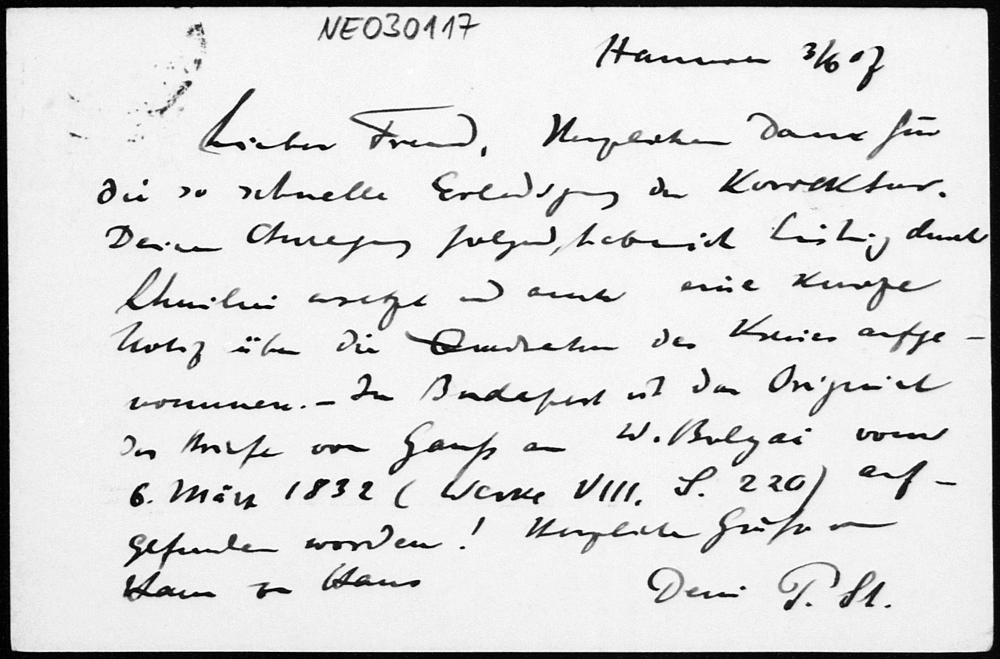 NEO30117
Hannover 3/6 07
Lieber Freund, Herzlichen Dank für
die so schnelle Erledigung der Korrektur.
Deiner Anregung folgend, habe ich Listig durch
ersetzt und auch eine kurze
Notiz über die Quadratur des Kreises aufge-
nommen. - In Budapest ist das Original
des Briefes von Gauß an W. Bolyai vom
6. März 1832 (Werke VIII, S. 220) auf-
gefunden worden! Herzliche Grüße von
Haus zu Haus
Dein P. St.